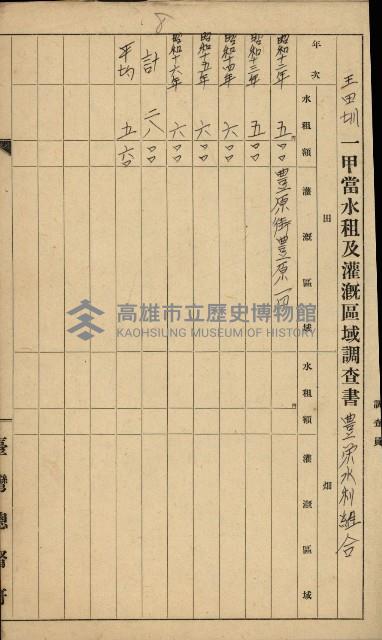 8
調查員
王田圳 一甲當水租及灌漑區域調查書 豊榮水利組合
田
畑
年次 水租額 灌漑區域 水租額 灌漑區域
昭和十二年 五〇〇 豊原街豊原一円
昭和十三年 五〇〇
昭和十四年 六〇〇
昭和十五年 六〇〇
昭和十六年 六〇〇
計 二八〇〇
平均 五六〇
臺灣總督府
高雄市立歷史博物館
KAOHSIUNG MUSEUM OF HISTORY